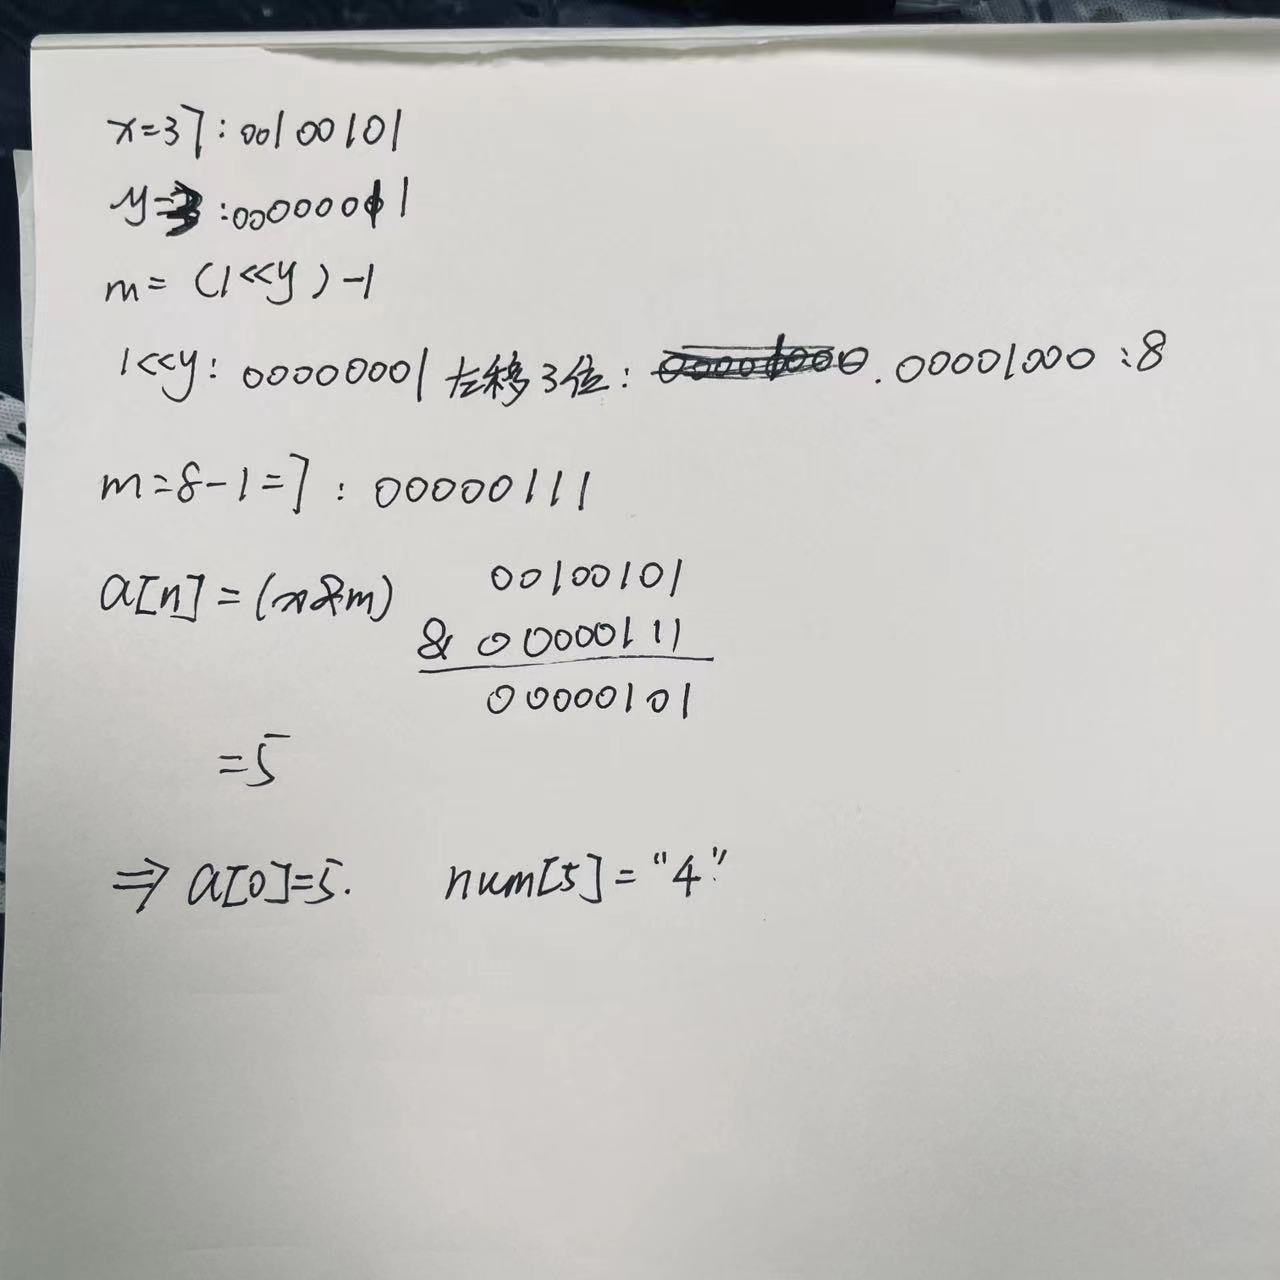 x=37:00100101
y=3:00000011
m=(1<<y)-1
1<<y:00000001左移3位:00001000.00001000:8
m=8-1=7:00000111
a[n]=(x&m) 00100101
& 00000111
00000101
=5
⇒a[0]=5. num[5]="4".